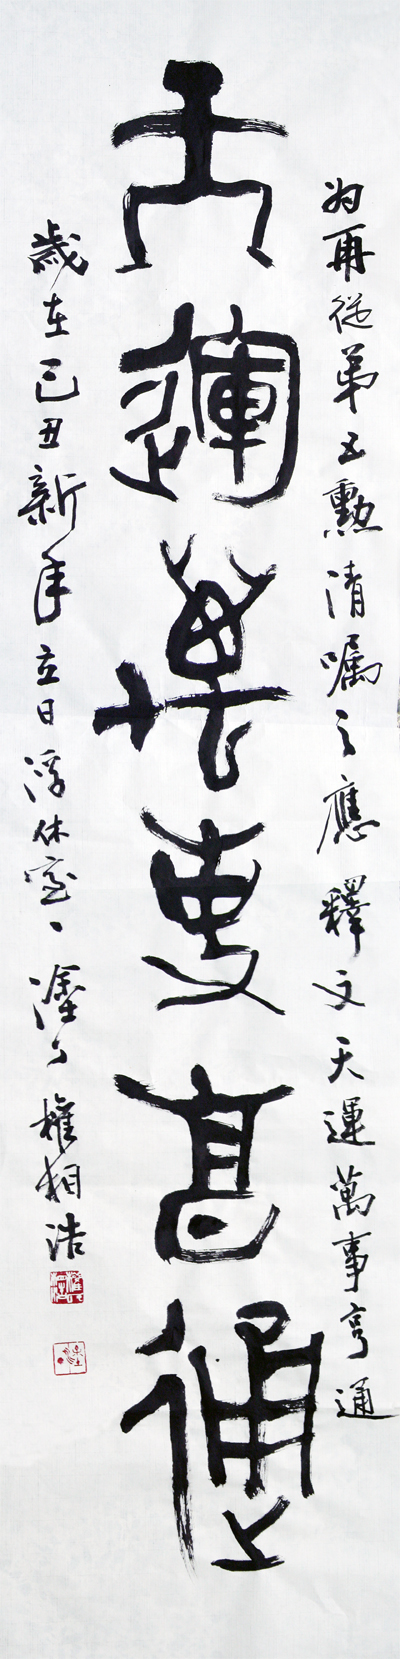 為再從弟五勳清囑之應釋文天運萬事亨通
天運萬事亨通
歲在己丑新年立日浮休室、塗丁權相浩